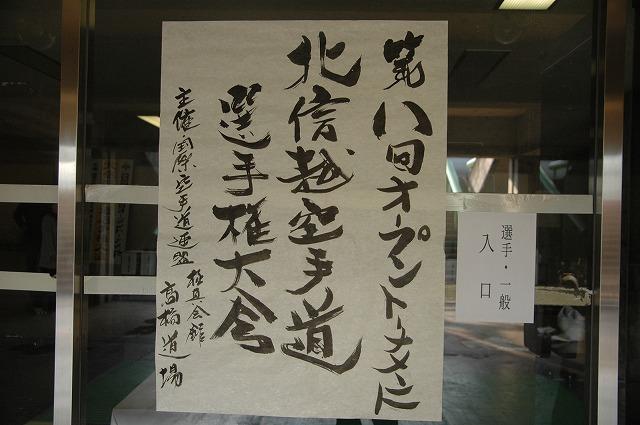 第八回オープントーナメント
北信越空手道
選手権大会
主催 国際空手道連盟
極真会館
高橋道場
選手・一般
入口